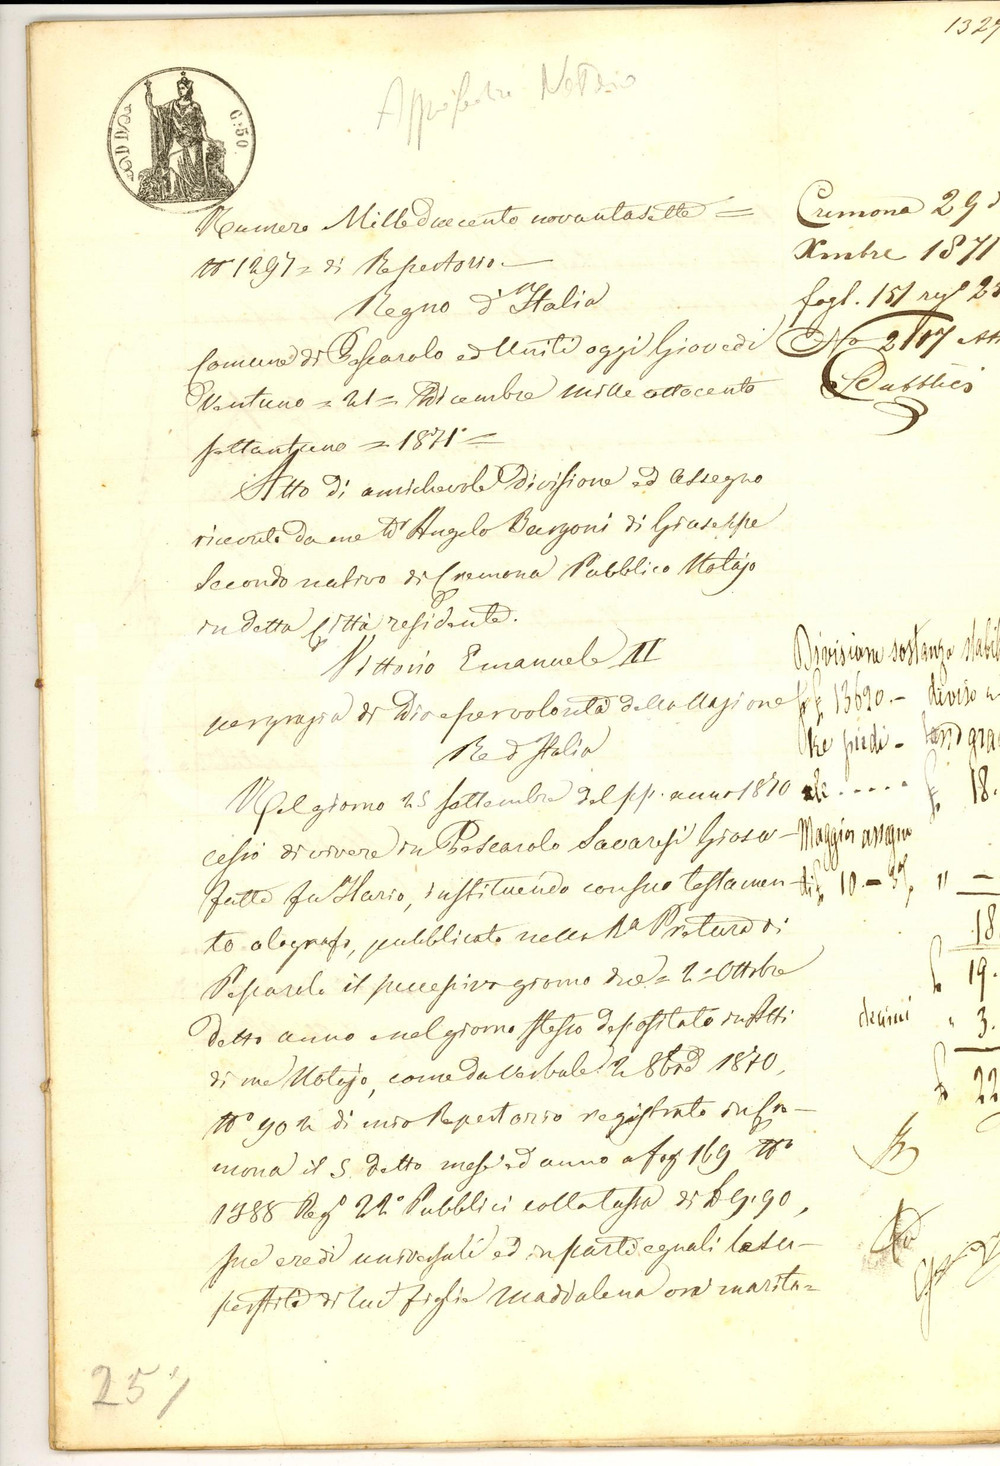 1327
C:50
Numero Mille duecento novantasette =
N° 1297 = di Repertorio. —
Regno d'Italia
Comune di Pescarolo ed Uniti oggi Giovedì
Ventuno = 21 = Dicembre mille ottocento
settantuno = 1871 =
Atto di amichevole Divisione ed Assegno
ricevuto da me Dr Angelo Barzoni di Giuseppe
Secondo nativo di Cremona Pubblico Notajo
in detta Città residente.
Vittorio Emanuele II
per grazia di Dio e per volontà della Nazione
Re d'Italia
Nel giorno 25 settembre del pp. anno 1870
cessò di vivere in Pescarolo Savaresi Giosa-
fatte fu Ilario, instituendo con suo testamen-
to olografo, pubblicato nella Ra Pretura di
Pescarolo il successivo giorno due = 2 = Ottobre
detto anno e nel giorno stesso depositato in Atti
di me Notajo, come da Verbale 2 8bre 1870,
N° 902 di mio Repertorio registrato in Cre-
mona il 5 detto mese ed anno a fog. 169 N°
1388 Reg° 22° Pubblici colla tassa di L 9.90,
sue eredi universali ed in parti eguali le su-
perstiti di lui figlie Maddalena ora marita=
Cremona 29 d
Xmbre 1871
fogl. 151 reg° 23
No 2117 Atti
Pubblici
Divisione sostanza stabil
13620.- diviso a
18.
Maggior assegno
di £ 10 - 
18
19.
decimi " 3.
£ 22
257